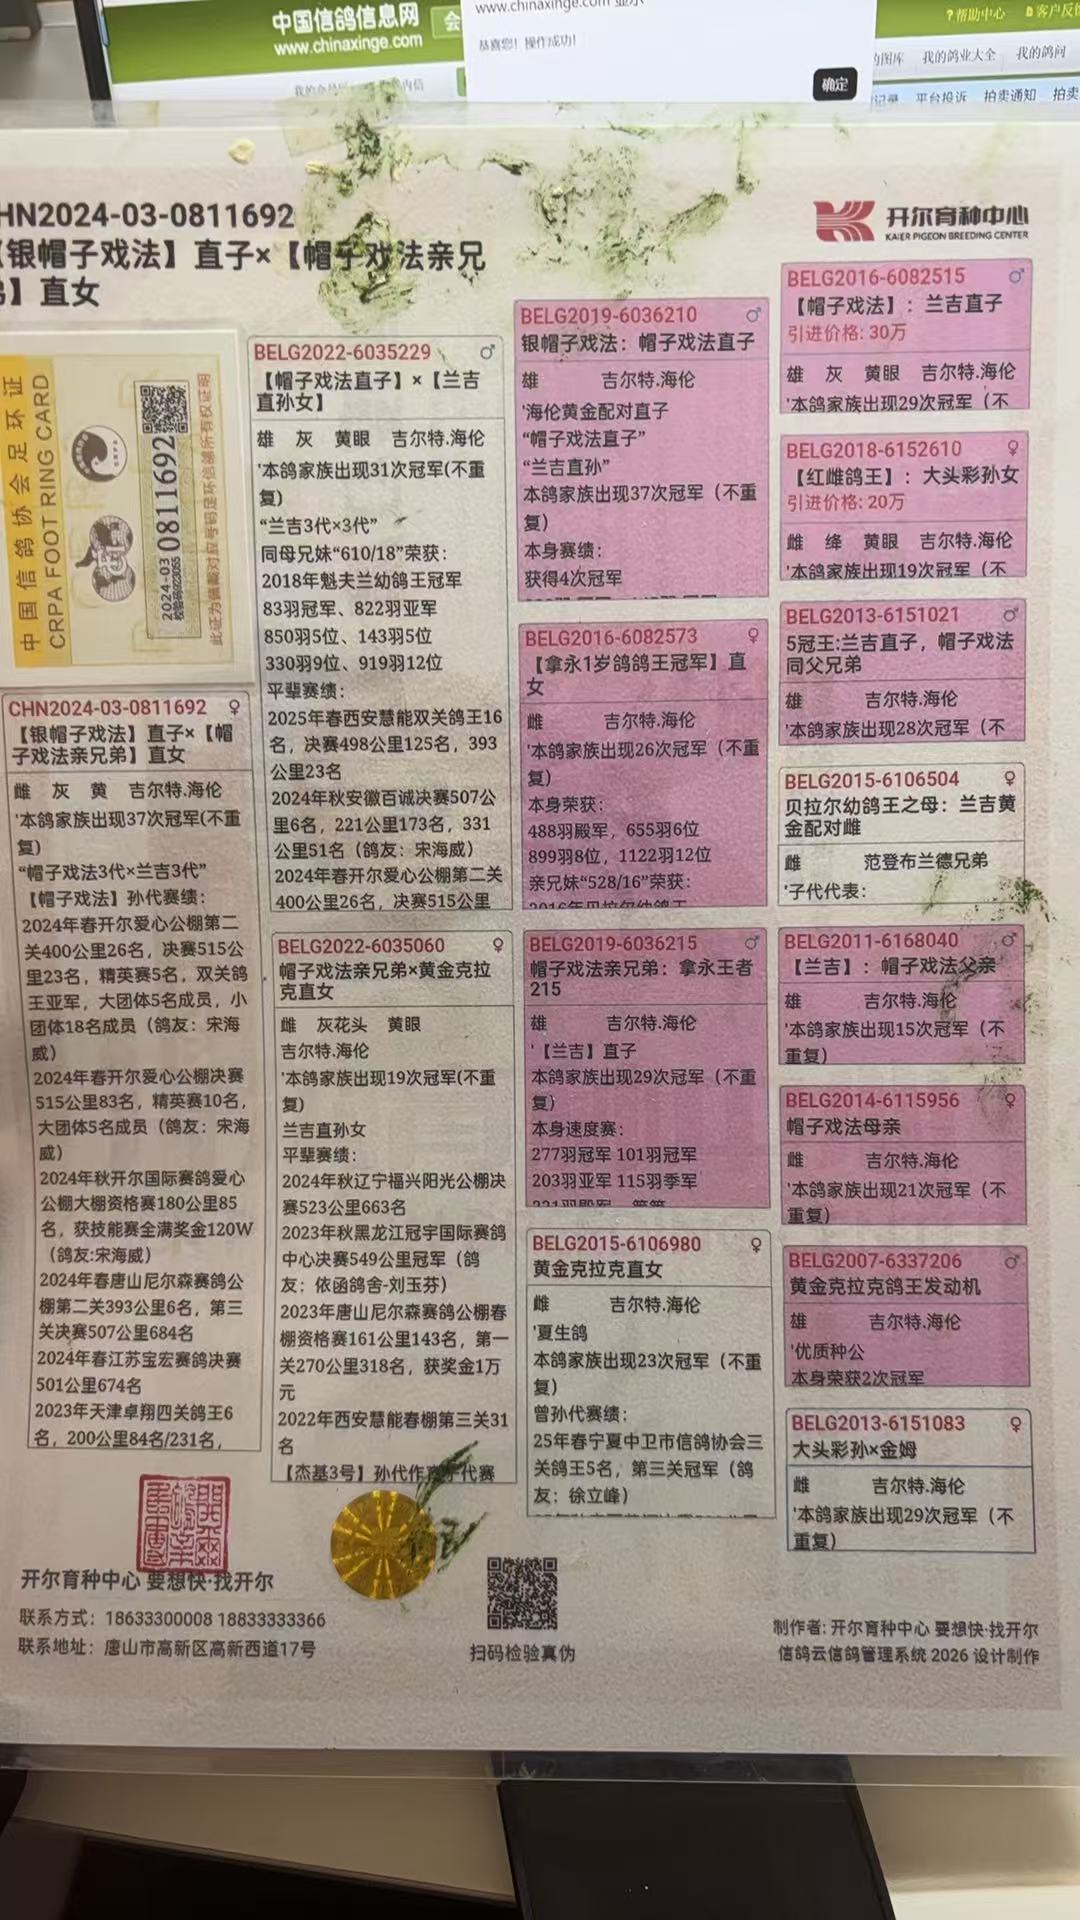 中国信鸽信息网
www.chinaxinge.com
www.chinaxinge.com
恭喜您！操作成功！
确定
?帮助中心
我的鸽业大全
我的鸽问
平台投诉
拍卖通知
拍卖
HN2024-03-0811692
【银帽子戏法】直子×【帽子戏法亲兄
】直女
开尔育种中心
KAIER PIGEON BREEDING CENTER
中国信鸽协会足环证
CRPA FOOT RING CARD
2024-03 0811692
CHN2024-03-0811692 ♀
【银帽子戏法】直子×【帽
子戏法亲兄弟】直女
雌 灰 黄 吉尔特.海伦
'本鸽家族出现37次冠军(不重
复)
“帽子戏法3代×兰吉3代”
【帽子戏法】孙代赛绩：
2024年春开尔爱心公棚第二
关400公里26名，决赛515公
里23名，精英赛5名，双关鸽
王亚军，大团体5名成员，小
团体18名成员（鸽友：宋海
威）
2024年春开尔爱心公棚决赛
515公里83名，精英赛10名，
大团体5名成员（鸽友：宋海
威）
2024年秋开尔国际赛鸽爱心
公棚大棚资格赛180公里85
名，获技能赛全满奖金120W
（鸽友:宋海威）
2024年春唐山尼尔森赛鸽公
棚第二关393公里6名，第三
关决赛507公里684名
2024年春江苏宝宏赛鸽决赛
501公里674名
2023年天津卓翔四关鸽王6
名，200公里84名/231名，
BELG2022-6035229 ♂
【帽子戏法直子】×【兰吉
直孙女】
雄 灰 黄眼 吉尔特.海伦
'本鸽家族出现31次冠军(不重
复)
“兰吉3代×3代”
同母兄妹“610/18”荣获：
2018年魁夫兰幼鸽王冠军
83羽冠军、822羽亚军
850羽5位、143羽5位
330羽9位、919羽12位
平辈赛绩：
2025年春西安慧能双关鸽王16
名，决赛498公里125名，393
公里23名
2024年秋安徽百诚决赛507公
里6名，221公里173名，331
公里51名（鸽友：宋海威）
2024年春开尔爱心公棚第二关
400公里26名，决赛515公里
BELG2022-6035060 ♀
帽子戏法亲兄弟×黄金克拉
克直女
雌 灰花头 黄眼
吉尔特.海伦
'本鸽家族出现19次冠军(不重
复)
兰吉直孙女
平辈赛绩：
2024年秋辽宁福兴阳光公棚决
赛523公里663名
2023年秋黑龙江冠宇国际赛鸽
中心决赛549公里冠军（鸽
友：依函鸽舍-刘玉芬）
2023年唐山尼尔森赛鸽公棚春
棚资格赛161公里143名，第一
关270公里318名，获奖金1万
元
2022年西安慧能春棚第三关31
名
【杰基3号】孙代作育子代赛
BELG2019-6036210 ♂
银帽子戏法：帽子戏法直子
雄 吉尔特.海伦
'海伦黄金配对直子
“帽子戏法直子”
“兰吉直孙”
本鸽家族出现37次冠军（不重
复）
本身赛绩：
获得4次冠军
BELG2016-6082573 ♀
【拿永1岁鸽鸽王冠军】直
女
雌 吉尔特.海伦
'本鸽家族出现26次冠军（不重
复）
本身荣获：
488羽殿军，655羽6位
899羽8位，1122羽12位
亲兄妹“528/16”荣获：
2016年贝拉尔幼鸽王
BELG2019-6036215 ♂
帽子戏法亲兄弟：拿永王者
215
雄 吉尔特.海伦
'【兰吉】直子
本鸽家族出现29次冠军（不重
复）
本身速度赛：
277羽冠军 101羽冠军
203羽亚军 115羽季军
221羽殿军 等等
BELG2015-6106980 ♀
黄金克拉克直女
雌 吉尔特.海伦
'夏生鸽
本鸽家族出现23次冠军（不重
复）
曾孙代赛绩：
25年春宁夏中卫市信鸽协会三
关鸽王5名，第三关冠军（鸽
友：徐立峰）
BELG2016-6082515 ♂
【帽子戏法】：兰吉直子
引进价格: 30万
雄 灰 黄眼 吉尔特.海伦
'本鸽家族出现29次冠军（不
BELG2018-6152610 ♀
【红雌鸽王】：大头彩孙女
引进价格: 20万
雌 绛 黄眼 吉尔特.海伦
'本鸽家族出现19次冠军（不
BELG2013-6151021 ♂
5冠王:兰吉直子，帽子戏法
同父兄弟
雄 吉尔特.海伦
'本鸽家族出现28次冠军（不
BELG2015-6106504 ♀
贝拉尔幼鸽王之母：兰吉黄
金配对雌
雌 范登布兰德兄弟
'子代代表：
BELG2011-6168040 ♂
【兰吉】：帽子戏法父亲
雄 吉尔特.海伦
'本鸽家族出现15次冠军（不
重复）
BELG2014-6115956 ♀
帽子戏法母亲
雌 吉尔特.海伦
'本鸽家族出现21次冠军（不
重复）
BELG2007-6337206 ♂
黄金克拉克鸽王发动机
雄 吉尔特.海伦
'优质种公
本身荣获2次冠军
BELG2013-6151083 ♀
大头彩孙×金姆
雌 吉尔特.海伦
'本鸽家族出现29次冠军（不
重复）
开尔育种中心 要想快·找开尔
联系方式：18633300008 18833333366
联系地址：唐山市高新区高新西道17号
扫码检验真伪
制作者: 开尔育种中心 要想快·找开尔
信鸽云信鸽管理系统 2026 设计制作